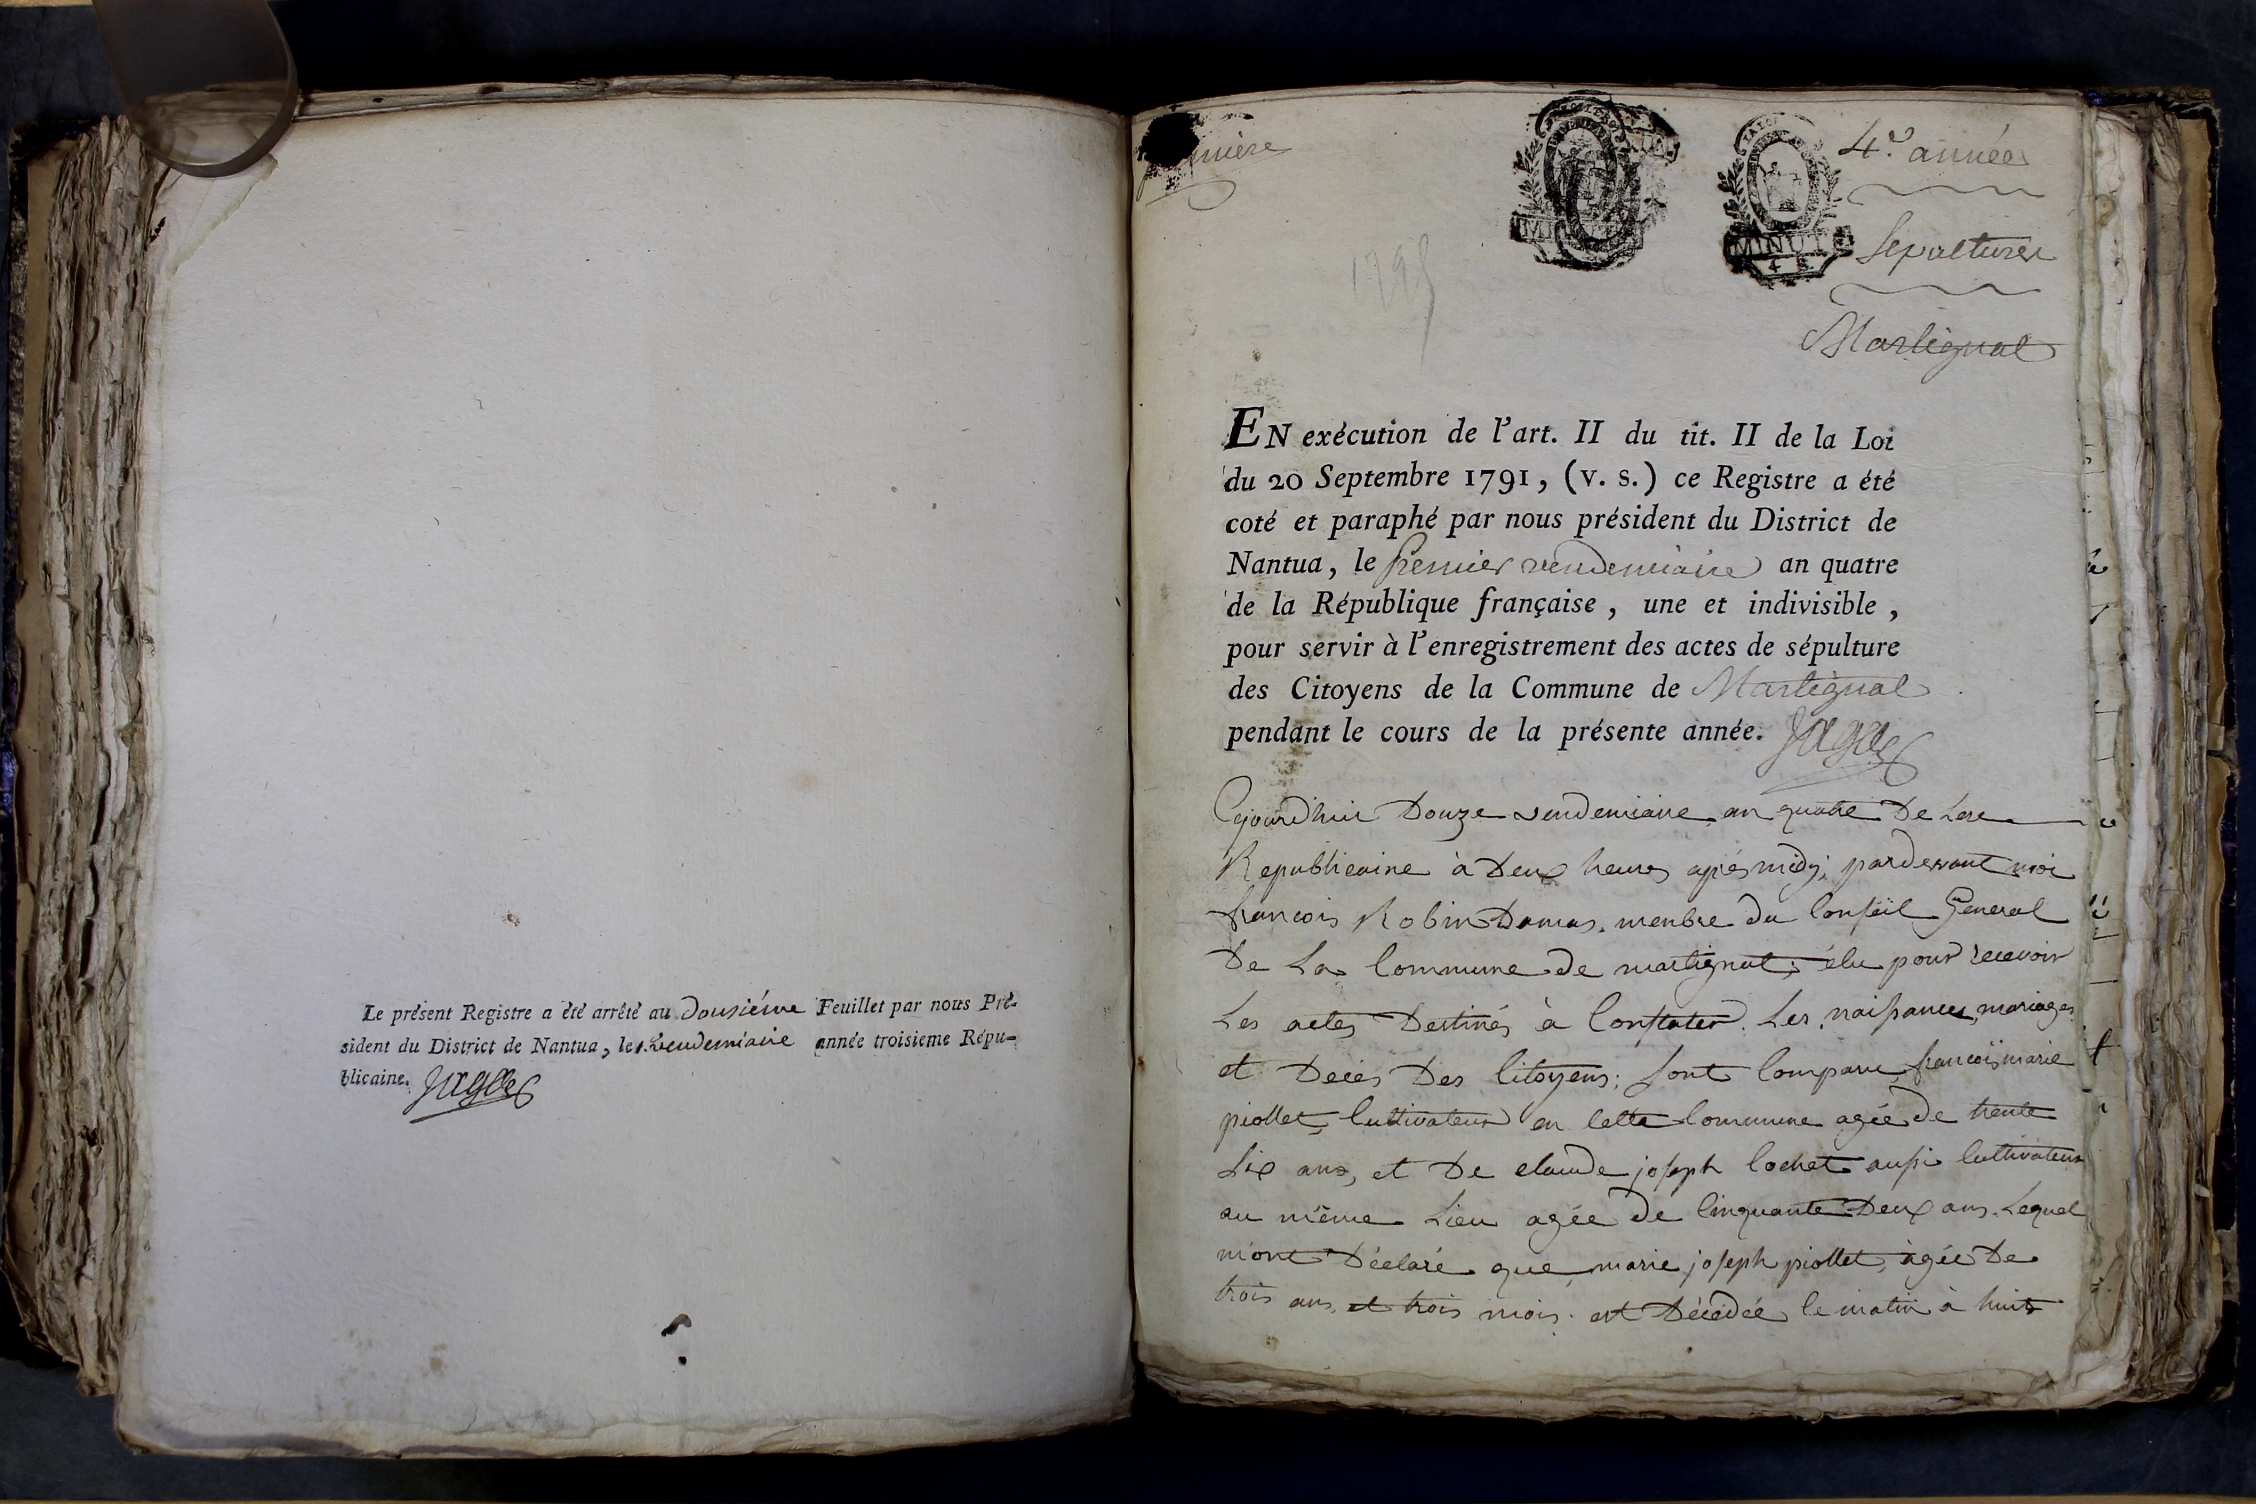 Le présent Registre a été arrêté au Douzième Feuillet par nous Pré-
sident du District de Nantua, le 1. vendemiaire année troisieme Répu-
blicaine. Jagot
4.e année
Sepultures
MINUTE
Martignat
1795
EN exécution de l'art. II du tit. II de la Loi
du 20 Septembre 1791, (v. s.) ce Registre a été
coté et paraphé par nous président du District de
Nantua, le premier vendemiaire an quatre
de la République française, une et indivisible,
pour servir à l'enregistrement des actes de sépulture
des Citoyens de la Commune de Martignat
pendant le cours de la présente année. Jagot
Cejourd'hui Douze vendemiaire an quatre De Lere
Republicaine à Deux heures après midy, pardevant moi
francois Robin Damas, menbre du Conseil General
De La Commune de martignat; élu pour recevoir
Les actes Destinés à Constater Les naissances, mariages
et Deces Des Citoyens; Sont Comparu francois marie
piollet, Cultivateur en Cette Commune agée de trente
Six ans, et De claude joseph Cochet aussi Cultivateur
au même Lieu agée De Cinquante Deux ans. Lequel
m'ont Déclaré que marie joseph piollet, agée De
trois ans et trois mois. est Décédée le matin à huit